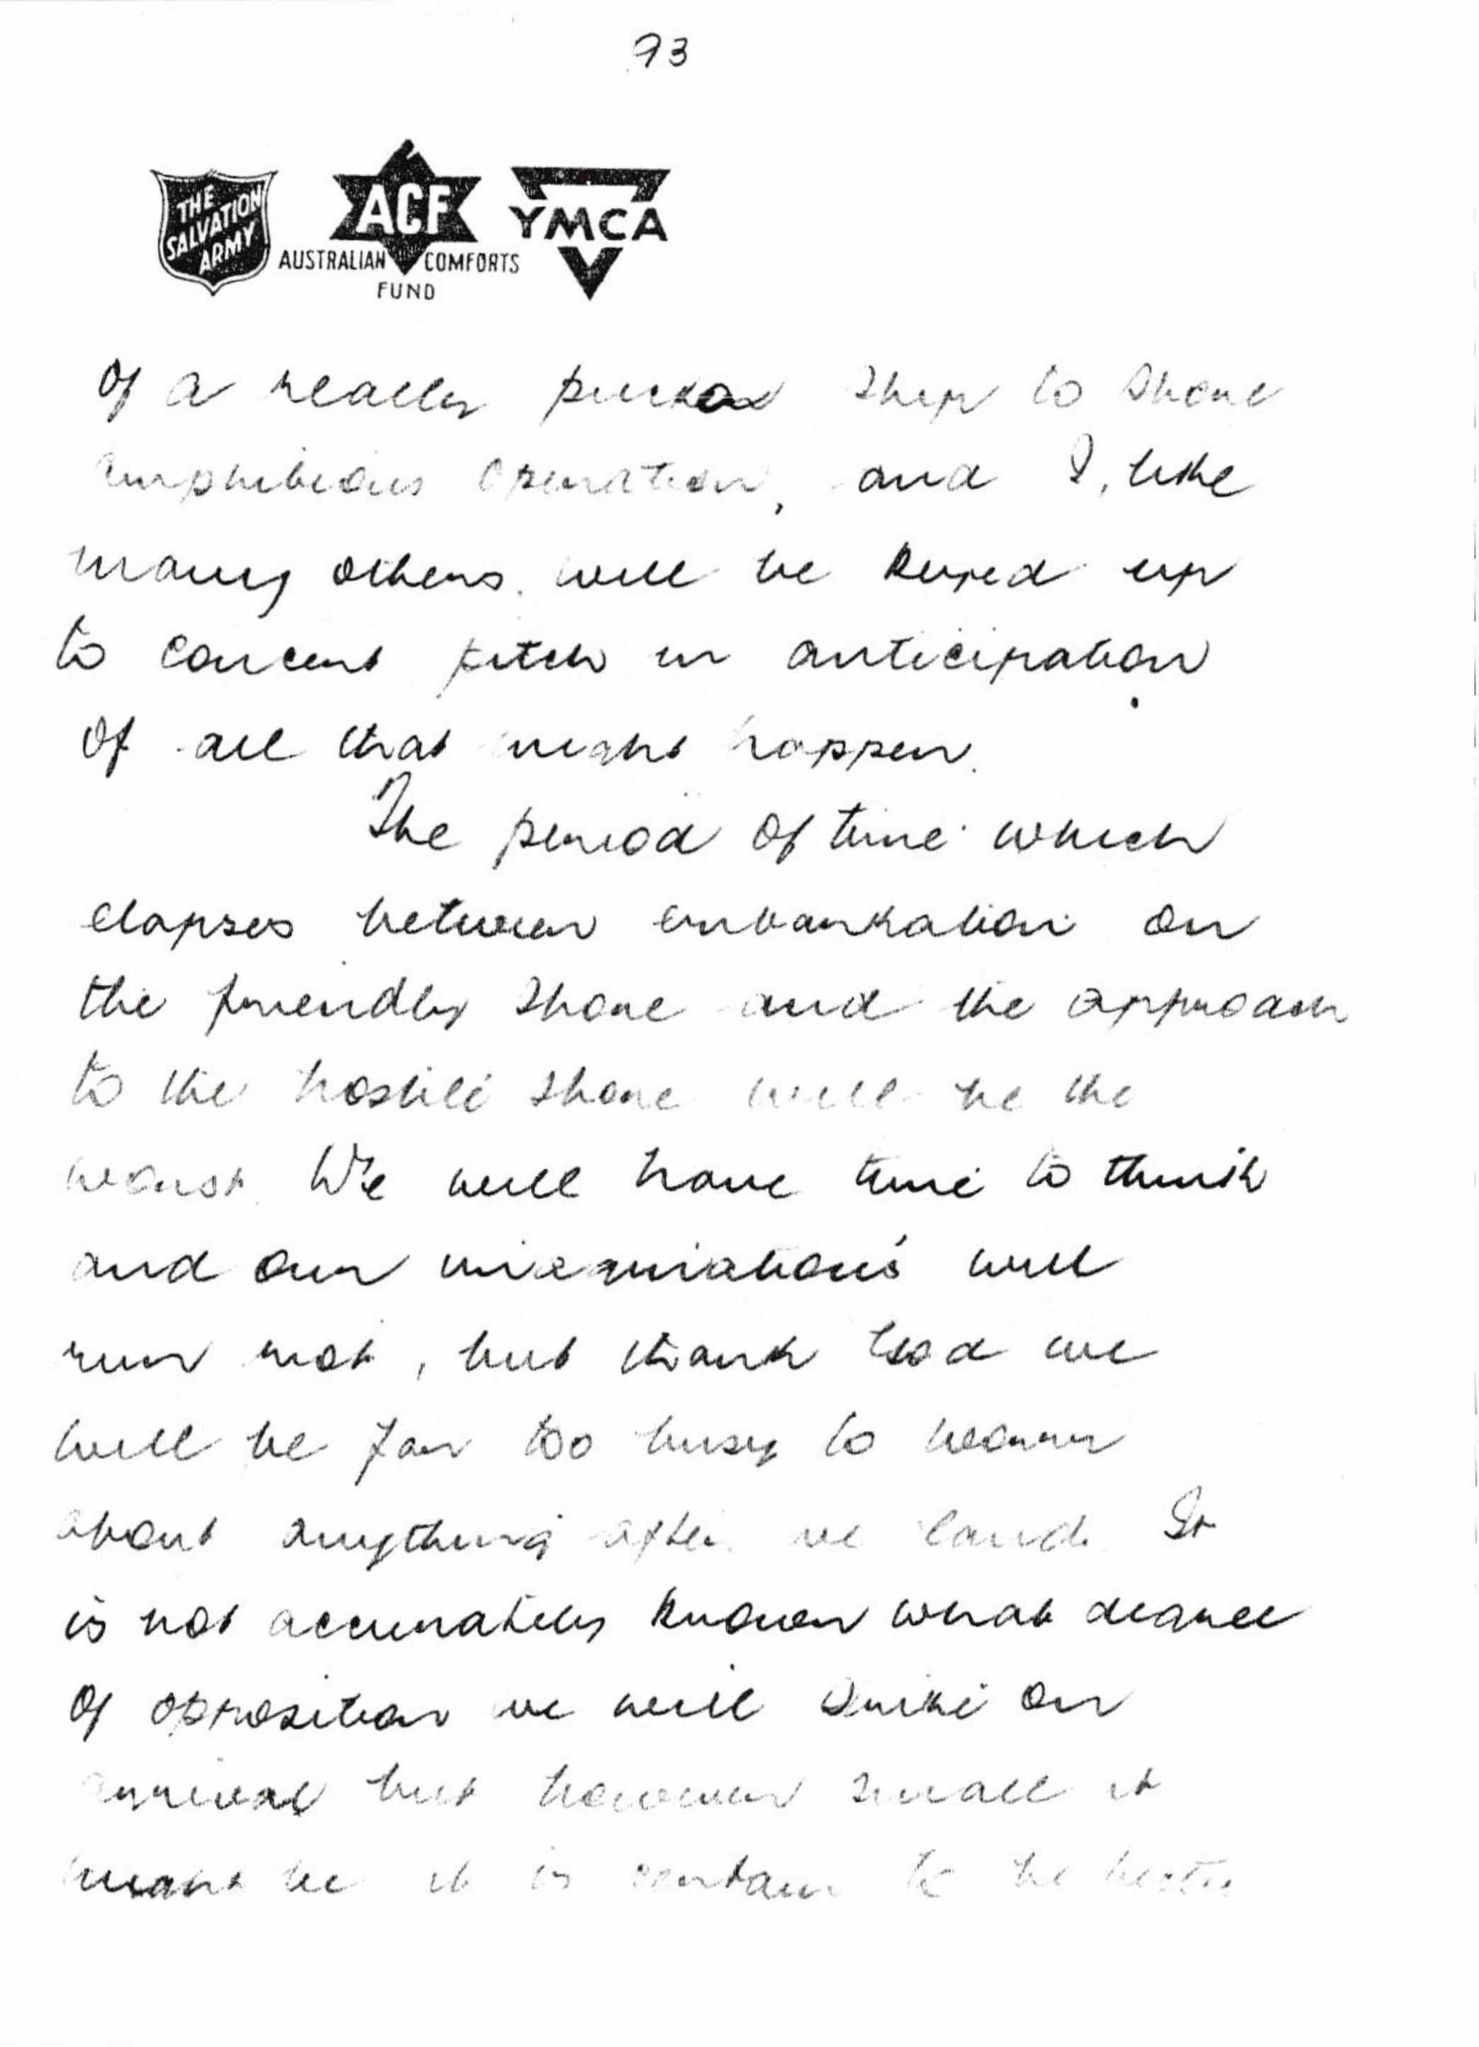 73
THE
SALVATION
ARMY
ACF
YMCA
AUSTRALIAN COMFORTS
FUND
of a really pukka ship to shore
amphibious operation, and I, like
many others, will be keyed up
to concert pitch in anticipation
of all that might happen.
The period of time which
elapses between embarkation on
the friendly shore and the approach
to the hostile shore will be the
worst. We will have time to think
and our imaginations will
run riot, but thank God we
will be far too busy to worry
about anything after we land. It
is not accurately known what degree
of opposition we will strike on
arrival but however small it
might be it is certain to be